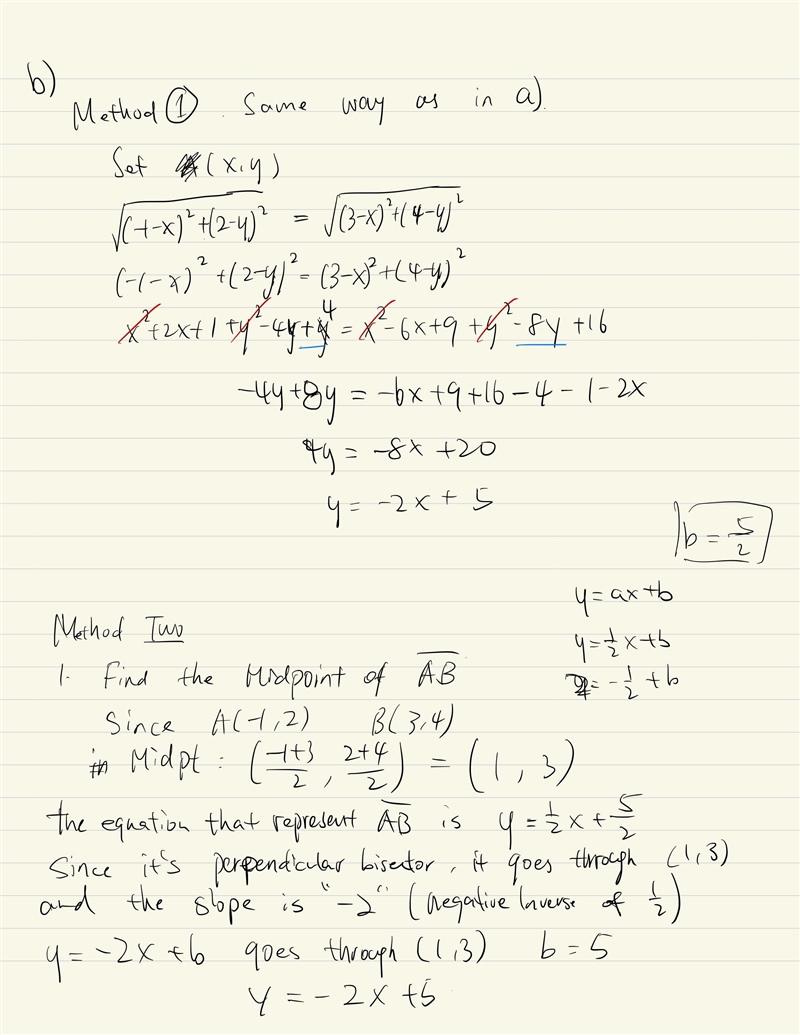 b)
Method ① . Same way as in a)
Set (x,y)
√((-1-x)²+(2-y)²) = √((3-x)²+(4-y)²)
(-1-x)²+(2-y)² = (3-x)²+(4-y)²
x²+2x+1+y²-4y+4 = x²-6x+9+y²-8y+16
-4y+8y = -6x+9+16-4-1-2x
4y = -8x+20
y = -2x+5
b = 5/2
y = ax+b
y = 1/2 x+b
2 = -1/2 + b
Method Two
1. Find the Midpoint of AB
Since A(-1,2) B(3,4)
Midpt : ((-1+3)/2, (2+4)/2) = (1,3)
the equation that represent AB is y = 1/2 x + 5/2
Since it's perpendicular bisector, it goes through (1,3)
and the slope is "-2" (negative Inverse of 1/2)
y = -2x+b goes through (1,3) b = 5
y = -2x+5